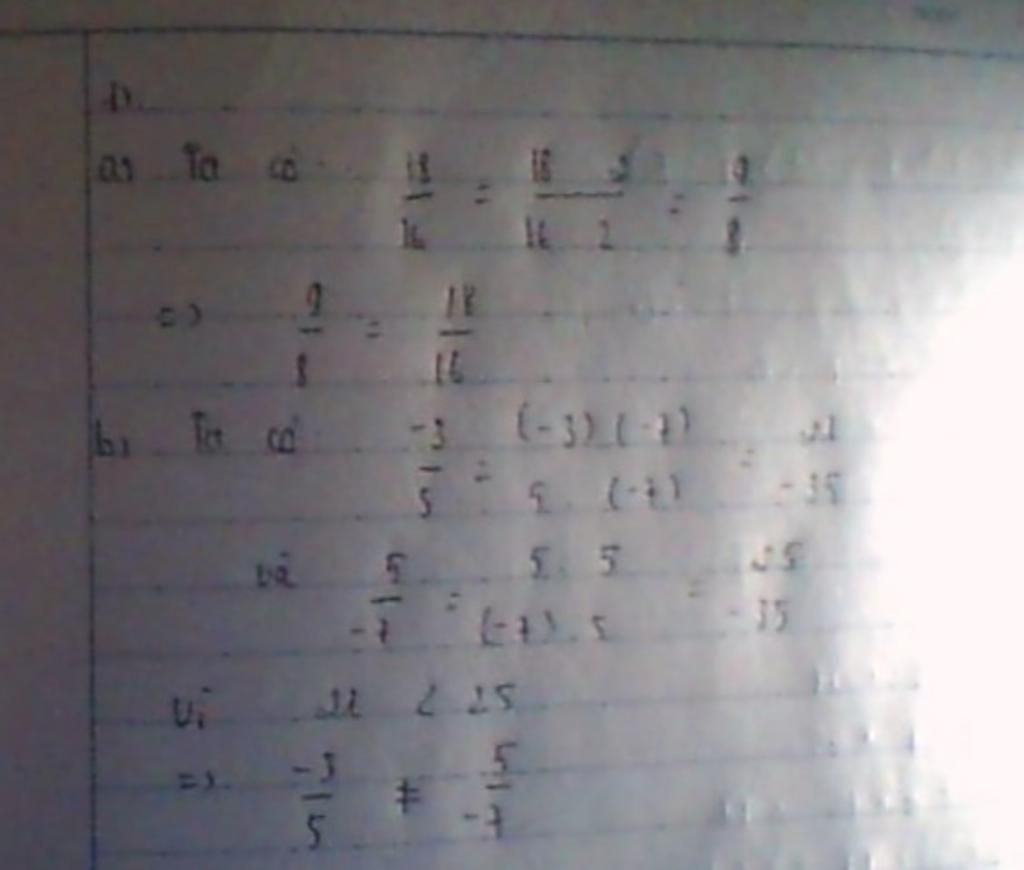 1).
a) Ta có: 18/16 = 18 : 2/16 : 2 = 9/8
=> 9/8 = 18/16
b) Ta có: -3/5 = (-3).(-7)/5.(-7) = 21/-35
và 5/-7 = 5.5/(-7).5 = 25/-35
Vì 21 < 25
=> -3/5 ≠ 5/-7